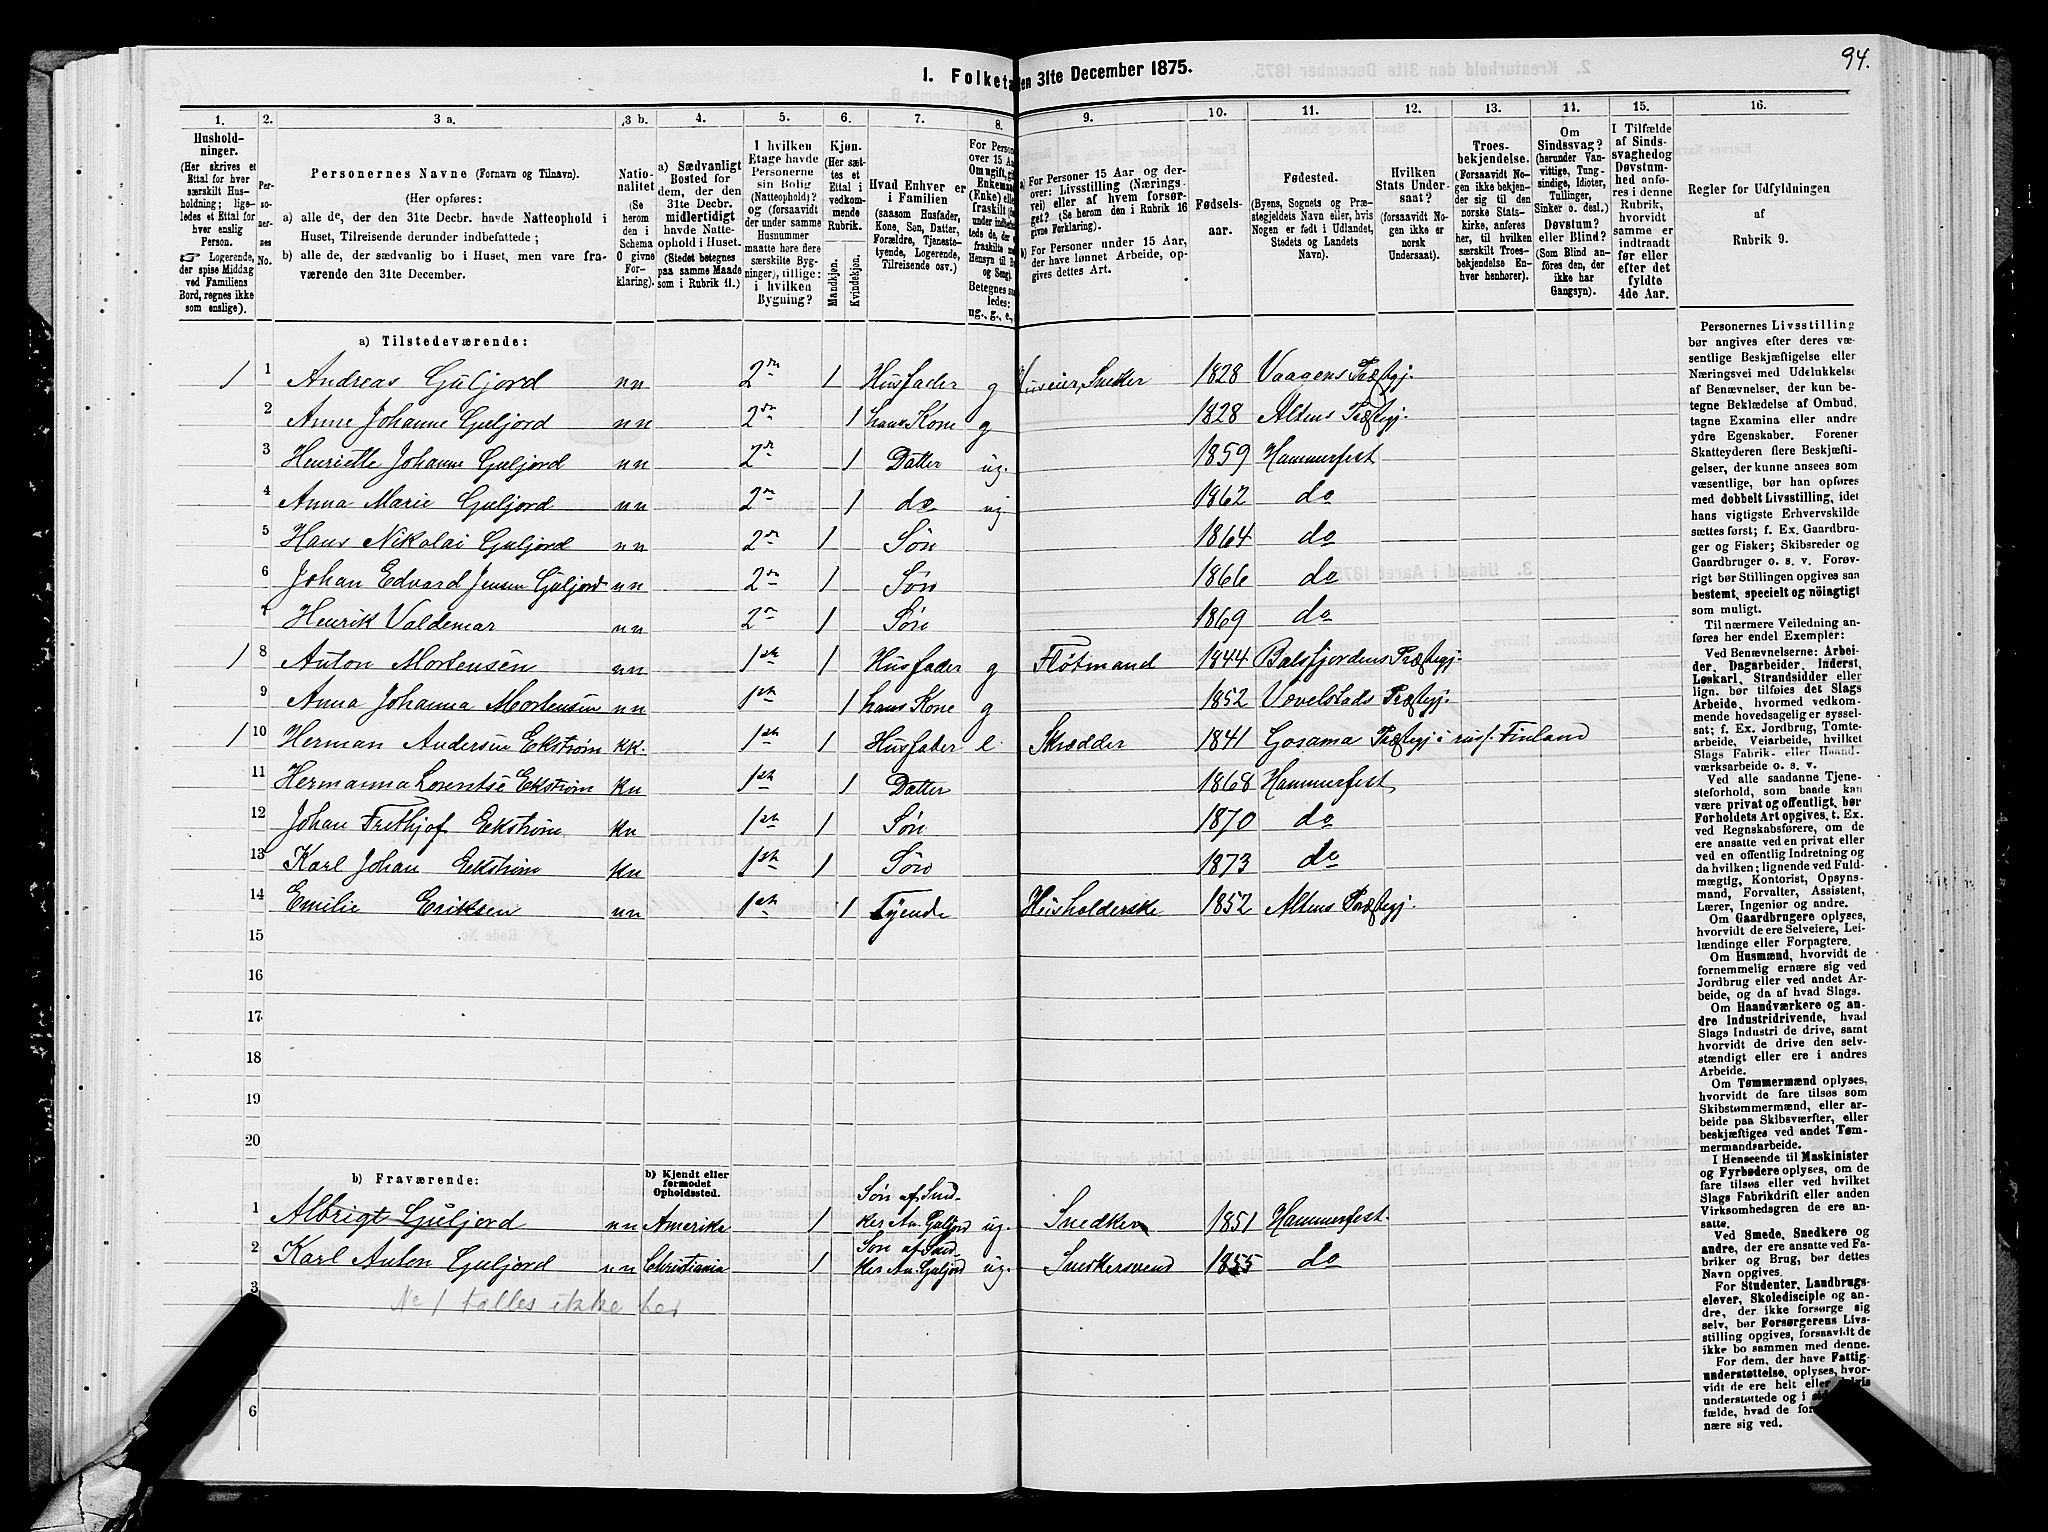 94.
1. Folketa
en 31te December 1875.
1. 2. 3 a. 3 b. 4. 5. 6. 7. 8. 9. 10. 11. 12. 13. 14. 15. 16.
Hushold-
ninger.
(Her skrives et
Ettal for hver
særskilt Hus-
holdning; lige-
ledes et Ettal for
hver enslig
Person.
☞ Logerende,
der spise Middag
ved Familiens
Bord, regnes ikke
som enslige).
Per-
so-
ner-
nes
No.
Personernes Navne (Fornavn og Tilnavn).
(Her opføres:
a) alle de, der den 31te Decbr. havde Natteophold i
Huset, Tilreisende derunder indbefattede;
b) alle de, der sædvanlig bo i Huset, men vare fra-
værende den 31te December.
Natio-
nalitet
(Se
herom
den i
Schema
O givne
For-
klaring).
a) Sædvanligt
Bosted for
dem, der den
31te Decbr.
midlertidigt
havde Natte-
ophold i Huset.
(Stedet betegnes
paa samme Maade
som i Rubrik 11.)
I hvilken
Etage havde
Personerne
sin Bolig
(Natteophold)?
og (forsaavidt
der under samme
Husnummer
maatte høre flere
særskilte Byg-
ninger), tillige:
i hvilken
Bygning?
Kjøn.
(Her sæt-
tes et
Ettal i
vedkom-
mende
Rubrik.
Mandkjøn.
Kvindekjøn.
Hvad Enhver er
i Familien
(saasom Husfader,
Kone, Søn, Datter,
Forældre, Tjeneste-
tyende, Logerende,
Tilreisende osv.)
For Person
over 15 Aa
Om ugift, gi
Enkemand
(Enke) elle
fraskilt (fr
under indbe
tede de, der
fraskilte me
Hensyn til B
og Seng).
Betegnes saa
ledes:
ug., g., e.,
a) For Personer 15 Aar og der-
over: Livsstilling (Nærings-
vei) eller af hvem forsør-
get? (Se herom den i Rubrik 16
givne Forklaring).
b) For Personer under 15 Aar,
der have lønnet Arbeide, op-
gives dettes Art.
Fødsels-
aar.
Fødested.
(Byens, Sognets og Præ-
stegjeldets Navn eller, hvis
Nogen er født i Udlandet,
Stedets og Landets
Navn).
Hvilken
Stats Under-
saat?
(forsaavidt No-
gen ikke er
norsk
Undersaat).
Troes-
bekjendelse.
(Forsaavidt No-
gen ikke bekjen-
der sig til den
norske Stats-
kirke, anføres
her, til hvilken
særskilt Troes-
bekjendelse En-
hver henhører).
Om
Sindssvag?
(herunder Van-
vittige, Tung-
sindige, Idioter,
Tullinger,
Sinker o. desl.)
Døvstum?
eller Blind?
(Som Blind an-
føres den, der
ikke har
Gangsyn).
I Tilfælde
af Sinds-
svaghedog
Døvstum-
hed anfø-
res i denne
Rubrik,
hvorvidt
samme er
indtraadt
før eller
efter det
fyldte
4de Aar.
Regler for Udfyldningen
af
Rubrik 9.
a) Tilstedeværende:
1 1 Andreas Guljord nn 2den 1 Husfader g Huseier, Snedker 1828 Vaagens Præstegj.
2 Anne Johanne Guljord nn 2den 1 hans Kone g 1828 Altens Præstegj.
3 Henriette Johanne Guljord nn 2den 1 Datter ug. 1859 Hammerfest
4 Anna Marie Guljord nn 2den 1 do ug 1862 do
5 Hans Nikolai Guljord nn 2den 1 Søn 1864 do
6 Johan Edvard Jensen Guljord nn 2den 1 Søn 1866 do
7 Henrik Valdemar nn 2den 1 Søn 1869 do
1 8 Anton Mortensen nn 1ste 1 Husfader g Fløtmand 1844 Balsfjordens Præstegj.
9 Anna Johanna Mortensen nn 1ste 1 hans Kone g 1852 Vævelstads Præstegj.
1 10 Herman Andersen Ekstrøm kk. 1ste 1 Husfader e. Skrædder 1841 Gosama Præstegj i russ. Finland
11 Hermanna Lorentse Ekstrøm kn 1ste 1 Datter 1868 Hammerfest
12 Johan Frithjof Ekstrøm kn 1ste 1 Søn 1870 do
13 Karl Johan Ekstrøm kn 1ste 1 Søn 1873 do
14 Emilie Eriksen nn 1ste 1 Tyende Husholderske 1852 Altens Præstegj.
15
16
17
18
19
20
b) Fraværende:
b) Kjendt eller
formodet
Opholdssted.
1 Albrigt Guljord nn Amerika 1 Søn af Sned-
ker An. Guljord ug. Snedker 1851 Hammerfest.
2 Karl Anton Guljord nn Christiania 1 Søn af Sned-
ker An. Guljord ug. Snedkersvend 1855 do
3
No 1 tælles ikke her
5
6
Personernes Livsstilling
bør angives efter deres væ-
sentlige Beskjæftigelse eller
Næringsvei med Udelukkelse
af Benævnelser, der kun be-
tegne Beklædelse af Ombud,
tagne Examina eller andre
ydre Egenskaber. Forener
Skatteyderen flere Beskjæfti-
gelser, der kunne ansees som
væsentlige, bør han opføres
med dobbelt Livsstilling, idet
hans vigtigste Erhvervskilde
sættes først; f. Ex. Gaardbru-
ger og Fisker; Skibsreder og
Gaardbruger o. s. v. Forøv-
rigt bør Stillingen opgives saa
bestemt, specielt og nöiagtigt
som muligt.
Til nærmere Veiledning an-
føres her endel Exempler:
Ved Benævnelserne: Arbei-
der, Dagarbeider, Inderst,
Løskarl, Strandsidder eller
lign. bør tilføies det Slags
Arbeide, hvormed vedkom-
mende hovedsagelig er syssel-
sat; f. Ex. Jordbrug, Tomte-
arbeide, Veiarbeide, hvilket
Slags Fabrik- eller Haand-
værksarbeide o. s. v.
Ved alle saadanne Tjene-
steforhold, som baade kan
være privat og offentligt, bør
Forholdets Art opgives, t. Ex.
ved Regnskabsførere, om de
ere ansatte ved en privat eller
ved en offentlig Indretning og
da hvilken; lignende ved Fuld-
mægtig, Kontorist, Opsyns-
mand, Forvalter, Assistent,
Lærer, Ingeniør og andre.
Om Gaardbrugere oplyses,
hvorvidt de ere Selveiere, Lei-
lændinge eller Forpagtere.
Om Husmænd, hvorvidt de
fornemmelig ernære sig ved
Jordbrug eller ved andet Ar-
beide, og da af hvad Slags.
Om Haandværkere og an-
dre Industridrivende, hvad
Slags Industri de drive, samt
hvorvidt de drive den selv-
stændigt eller ere i andres
Arbeide.
Om Tømmermænd oplyses,
hvorvidt de fare tilsøs som
Skibstømmermænd, eller ar-
beide paa Skibsværfter, eller
beskjæftiges ved andet Tøm-
mermandsarbeide.
I Henseende til Maskinister
og Fyrbødere oplyses, om de
fare tilsøs eller ved hvilket
Slags Fabrikdrift eller anden
Virksomhedsgren de ere an-
satte.
Ved Smede, Snedkere og
andre, der ere ansatte ved Fa-
briker og Brug, bør dettes
Navn opgives.
For Studenter, Landbrugs-
elever, Skoledisciple og an-
dre, der ikke forsørge sig
selv, bør Forsørgerens Livs-
stilling opgives, forsaavidt de
ikke bo sammen med denne.
For dem, der have Fattig-
understøttelse, oplyses, hvor-
vidt de ere helt eller delvis
understøttede og i
fælde, hvad de for
nære sig ved.